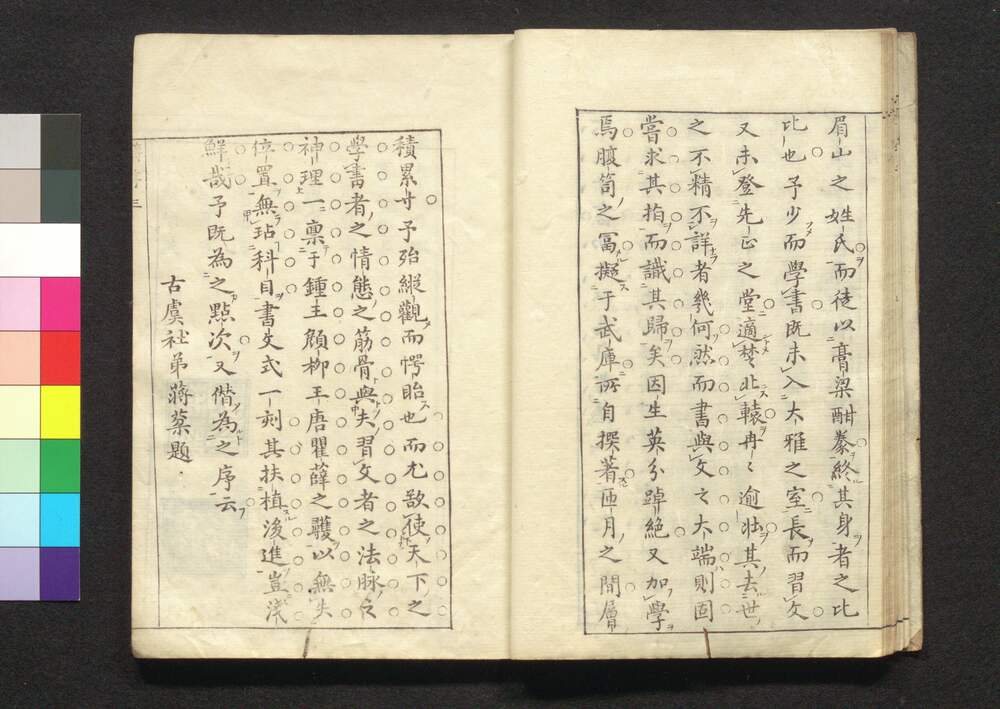 眉山之姓氏而徒以膏粱酣豢終其身者之比
比也予少而學書既未入大雅之室長而習文
又未登先正之堂適楚北轅冉〻逾壯其去世
之不精不詳者幾何然而書與文之大端則固
嘗求其指而識其歸矣因生英分踔絕又加學
焉腹笥之冨擬于武庫所自撰著匝月之間層
積累寸予殆縱觀而愕眙也而尤欲使天下之
學書者之情態之筋骨與夫習文者之法脉之
神理一稟于鍾王顏柳王唐瞿薛之䕶以無失
位置無玷科目書文式一刻其扶植後進豈淺
鮮哉予既為之點次又僭為之序云
古虞社弟蔣棻題